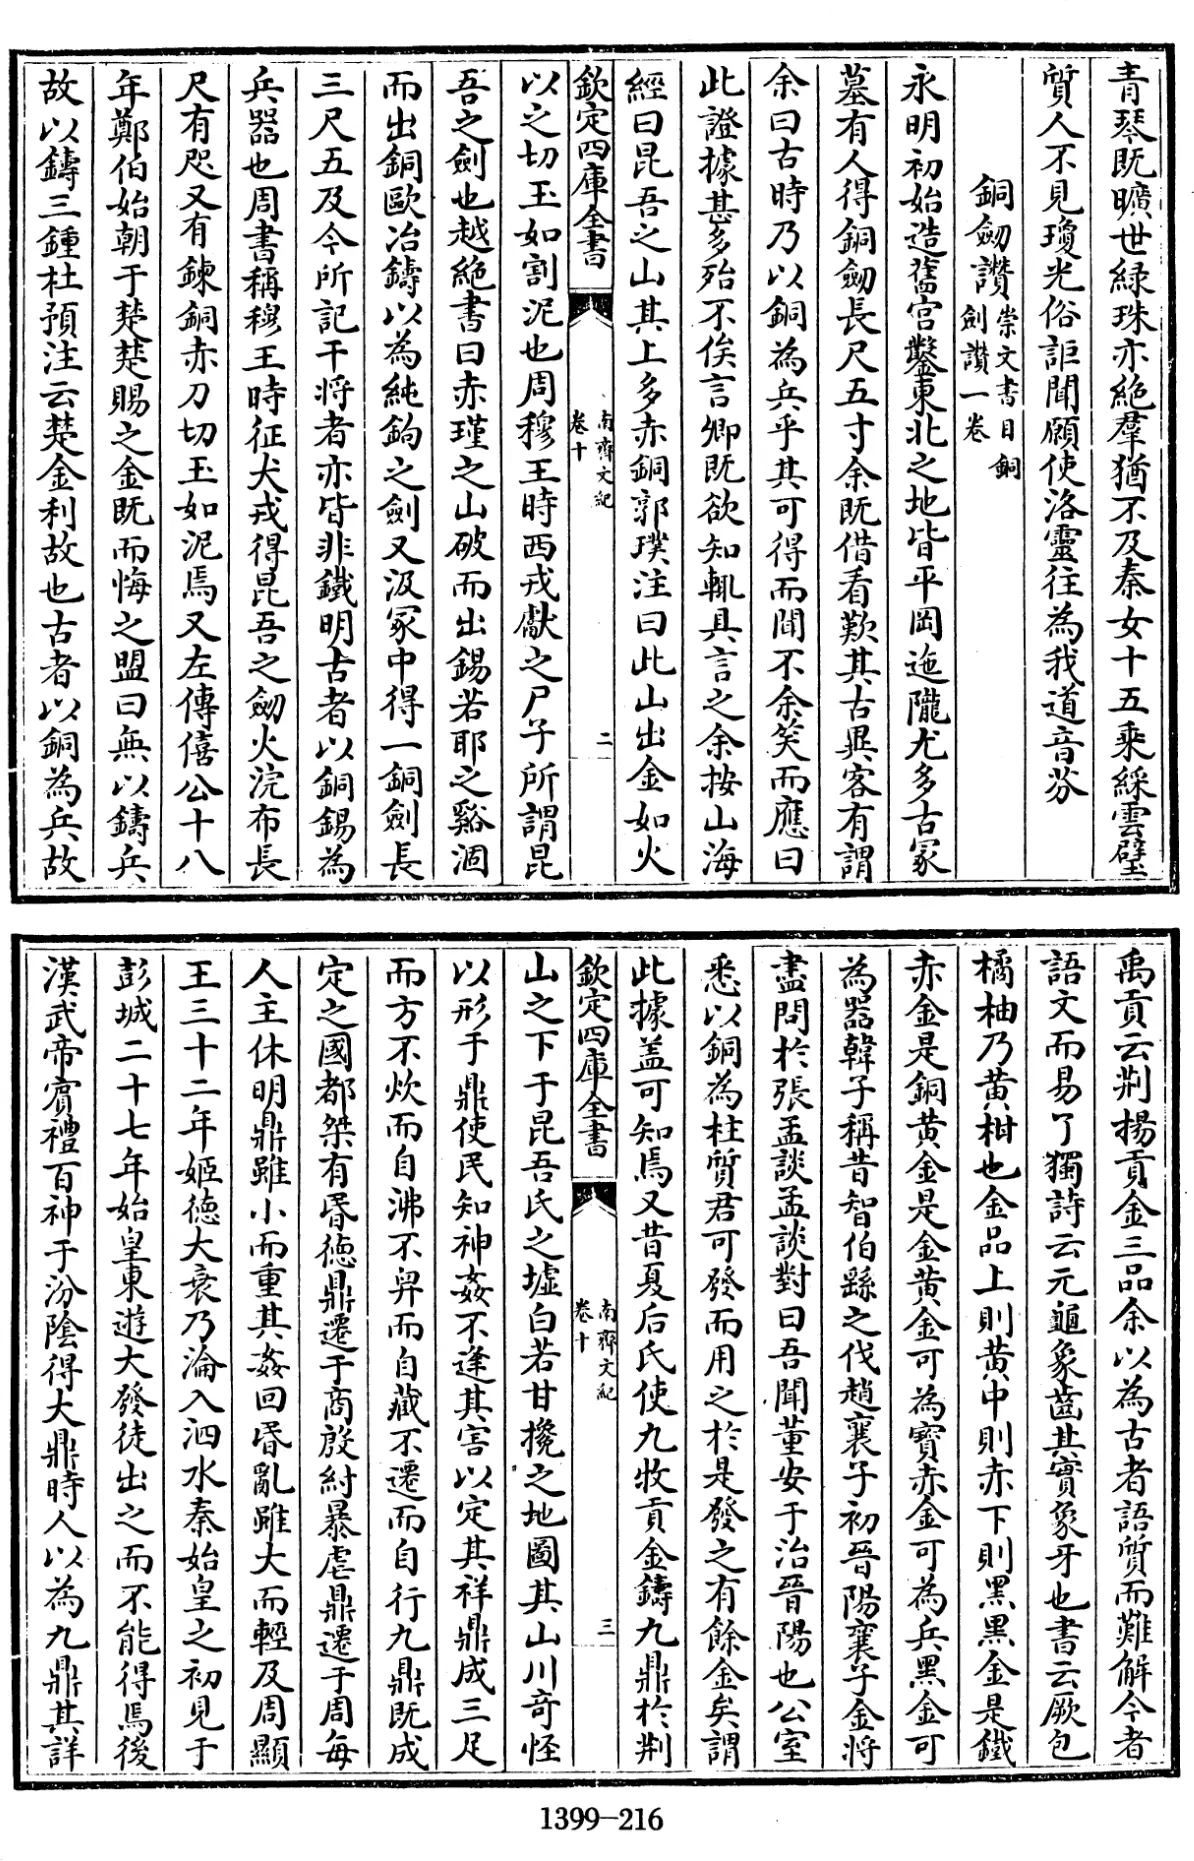 青琴既曠世緑珠亦絶羣猶不及秦女十五乘綵雲璧
質人不見瓊光俗詎聞願使洛靈往為我道音芬
銅劒讚崇文書目銅劍讚一卷
永明初始造舊宫鑿東北之地皆平岡迤隴尤多古冢
墓有人得銅劒長尺五寸余既借看歎其古異客有謂
余曰古時乃以銅為兵乎其可得而聞不余笑而應曰
此證據甚多殆不俟言卿既欲知輒具言之余按山海
經曰昆吾之山其上多赤銅郭璞注曰此山出金如火
欽定四庫全書 南齊文紀 卷十 二
以之切玉如割泥也周穆王時西戎獻之尸子所謂昆
吾之劍也越絶書曰赤瑾之山破而出錫若耶之谿涸
而出銅歐冶鑄以為純鉤之劍又汲冢中得一銅劍長
三尺五及今所記干将者亦皆非鐵明古者以銅錫為
兵器也周書稱穆王時征犬戎得昆吾之劒火浣布長
尺有咫又有鍊銅赤刀切玉如泥焉又左傳僖公十八
年鄭伯始朝于楚楚賜之金既而悔之盟曰無以鑄兵
故以鑄三鍾杜預注云楚金利故也古者以銅為兵故
禹貢云荆揚貢金三品余以為古者語質而難解今者
語文而易了獨詩云元龜象齒其實象牙也書云厥包
橘柚乃黄柑也金品上則黄中則赤下則黑黑金是鐵
赤金是銅黄金是金黄金可為寳赤金可為兵黑金可
為器韓子稱昔智伯繇之伐趙襄子初晉陽襄子金將
盡問於張孟談孟談對曰吾聞董安于治晉陽也公室
悉以銅為柱質君可發而用之於是發之有餘金矣謂
此據盖可知焉又昔夏后氏使九牧貢金鑄九鼎於荆
欽定四庫全書 南齊文紀 卷十 三
山之下于昆吾氏之墟白若甘攙之地圖其山川竒怪
以形于鼎使民知神姦不逢其害以定其祥鼎成三足
而方不炊而自沸不舁而自藏不遷而自行九鼎既成
定之國都桀有昬徳鼎遷于商殷紂暴虐鼎遷于周每
人主休明鼎雖小而重其姦回昬亂雖大而輕及周顯
王三十二年姬徳大衰乃淪入泗水秦始皇之初見于
彭城二十七年始皇東遊大發徒出之而不能得焉後
漢武帝賓禮百神于汾陰得大鼎時人以為九鼎其詳
1399-216